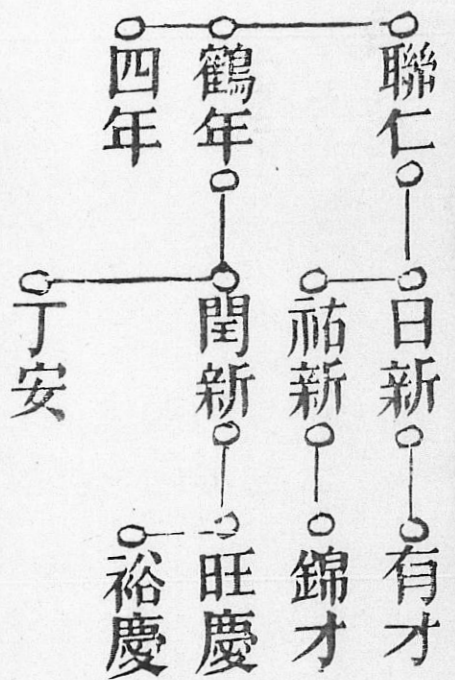 聯仁
鶴年
四年
日新
祐新
閏新
丁安
有才
錦才
旺慶
裕慶